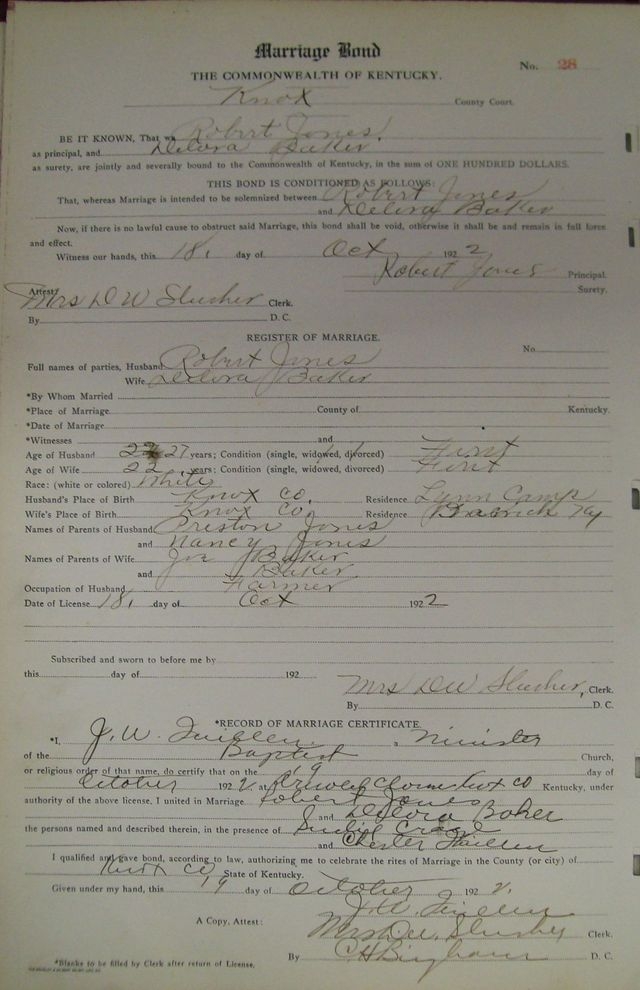 Marriage Bond
No. 28
THE COMMONWEALTH OF KENTUCKY.
Knox County Court.
BE IT KNOWN, That we Robert Jones,
as principal, and Delora Baker
as surety, are jointly and severally bound to the Commonwealth of Kentucky, in the sum of ONE HUNDRED DOLLARS.
THIS BOND IS CONDITIONED AS FOLLOWS:
That, whereas Marriage is intended to be solemnized between Robert Jones
and Delora Baker
Now, if there is no lawful cause to obstruct said Marriage, this bond shall be void, otherwise it shall be and remain in full force
and effect.
Witness our hands, this 18, day of Oct 1922
Robert Jones Principal.
Attest: Surety.
Mrs D W Slusher Clerk.
By D. C.
REGISTER OF MARRIAGE.
No.
Full names of parties, Husband Robert Jones
Wife Delora Baker
*By Whom Married
*Place of Marriage County of Kentucky.
*Date of Marriage
*Witnesses and
Age of Husband 27 years; Condition (single, widowed, divorced) First
Age of Wife 22 years; Condition (single, widowed, divorced) First
Race: (white or colored) White
Husband's Place of Birth Knox Co. Residence Lynn Camp
Wife's Place of Birth Knox Co. Residence Ky
Names of Parents of Husband Preston Jones
and Nancy Jones
Names of Parents of Wife Joe Baker
and Baker
Occupation of Husband Farmer
Date of License 18, day of Oct 1922
Subscribed and sworn to before me by
this day of 192
Mrs D W Slusher, Clerk.
By D. C.
*RECORD OF MARRIAGE CERTIFICATE.
*I, J. W. , Minister
of the Baptist Church,
or religious order of that name, do certify that on the 19 day of
October 192 2 at Knox Co Kentucky, under
authority of the above license, I united in Marriage Robert Jones
and Delora Baker
the persons named and described therein, in the presence of
and Chester
I qualified and gave bond, according to law, authorizing me to celebrate the rites of Marriage in the County (or city) of
Knox Co State of Kentucky.
Given under my hand, this 19 day of October 192 2.
J. W.
A Copy, Attest: Mrs D W Slusher Clerk.
By C H Bingham D. C.
*Blanks to be filled by Clerk after return of License.